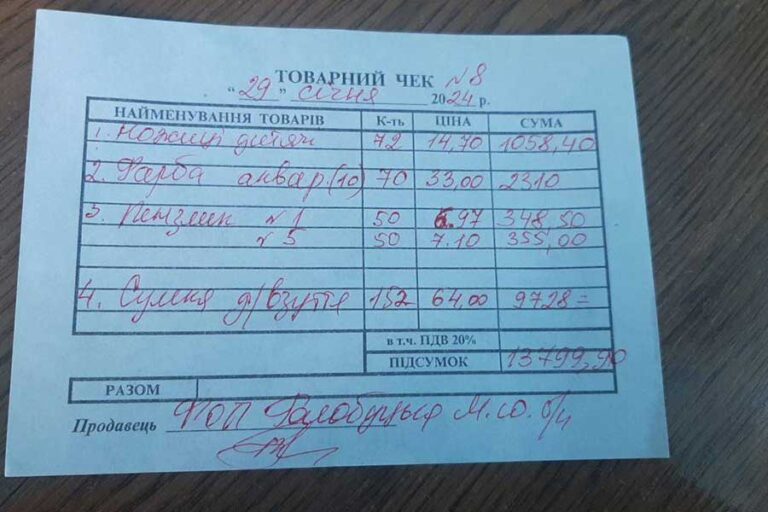 ТОВАРНИЙ ЧЕК №8
“29” січня 2024 р.
НАЙМЕНУВАННЯ ТОВАРІВ К-ть ЦІНА СУМА
1. Ножиці дитячі 72 14,70 1058,40
2. Фарба аквар.(10) 70 33,00 2310
3. Пензлик №1 50 6.97 348,50
№5 50 7.10 355,00
4. Сумка д/взуття 152 64,00 9728=
в т.ч. ПДВ 20%
ПІДСУМОК 13799,90
РАЗОМ
Продавець ФОП М.Ю.